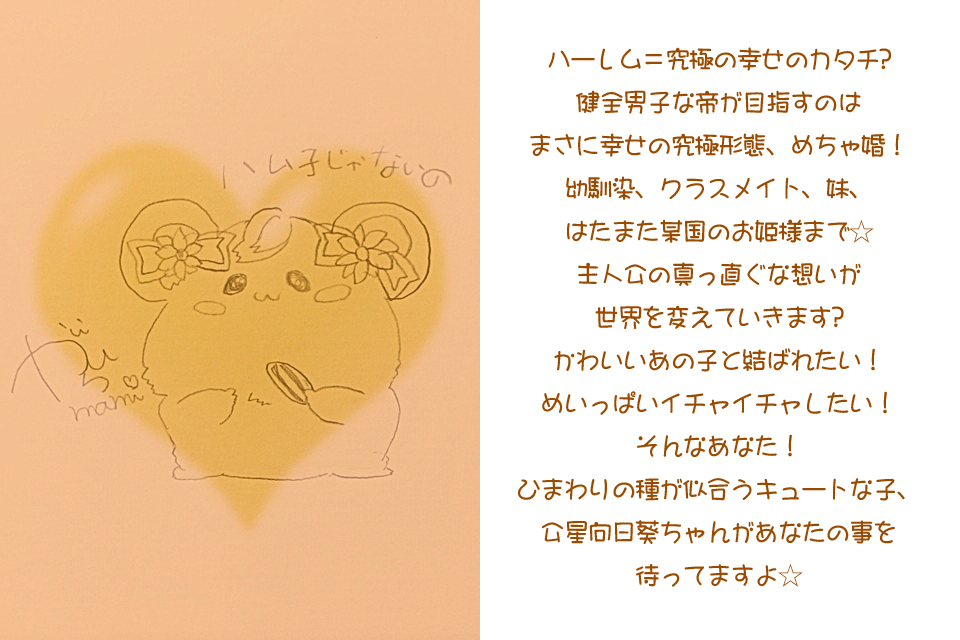 ハム子じゃないの
mami
ハーレム＝究極の幸せのカタチ?
健全男子な帝が目指すのは
まさに幸せの究極形態、めちゃ婚！
幼馴染、クラスメイト、妹、
はたまた某国のお姫様まで☆
主人公の真っ直ぐな想いが
世界を変えていきます?
かわいいあの子と結ばれたい！
めいっぱいイチャイチャしたい！
そんなあなた！
ひまわりの種が似合うキュートな子、
公星向日葵ちゃんがあなたの事を
待ってますよ☆